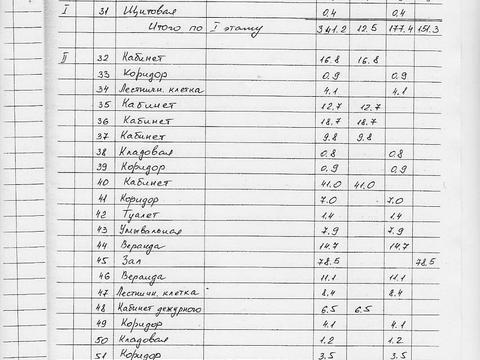 I 31 Щитовая 0.4 0.4
Итого по I этажу 341.2 12.5 177.4 151.3
II 32 Кабинет 16.8 16.8
33 Коридор 0.9 0.9
34 Лестничн. клетка 4.1 4.1
35 Кабинет 12.7 12.7
36 Кабинет 18.7 18.7
37 Кабинет 9.8 9.8
38 Кладовая 0.8 0.8
39 Коридор 0.9 0.9
40 Кабинет 41.0 41.0
41 Коридор 7.0 7.0
42 Туалет 1.4 1.4
43 Умывальная 7.9 7.9
44 Веранда 14.7 14.7
45 Зал 78.5 78.5
46 Веранда 11.1 11.1
47 Лестничн. клетка 8.4 8.4
48 Кабинет дежурного 6.5 6.5
49 Коридор 4.1 4.1
50 Кладовая 1.2 1.2
51 Коридор 3.5 3.5